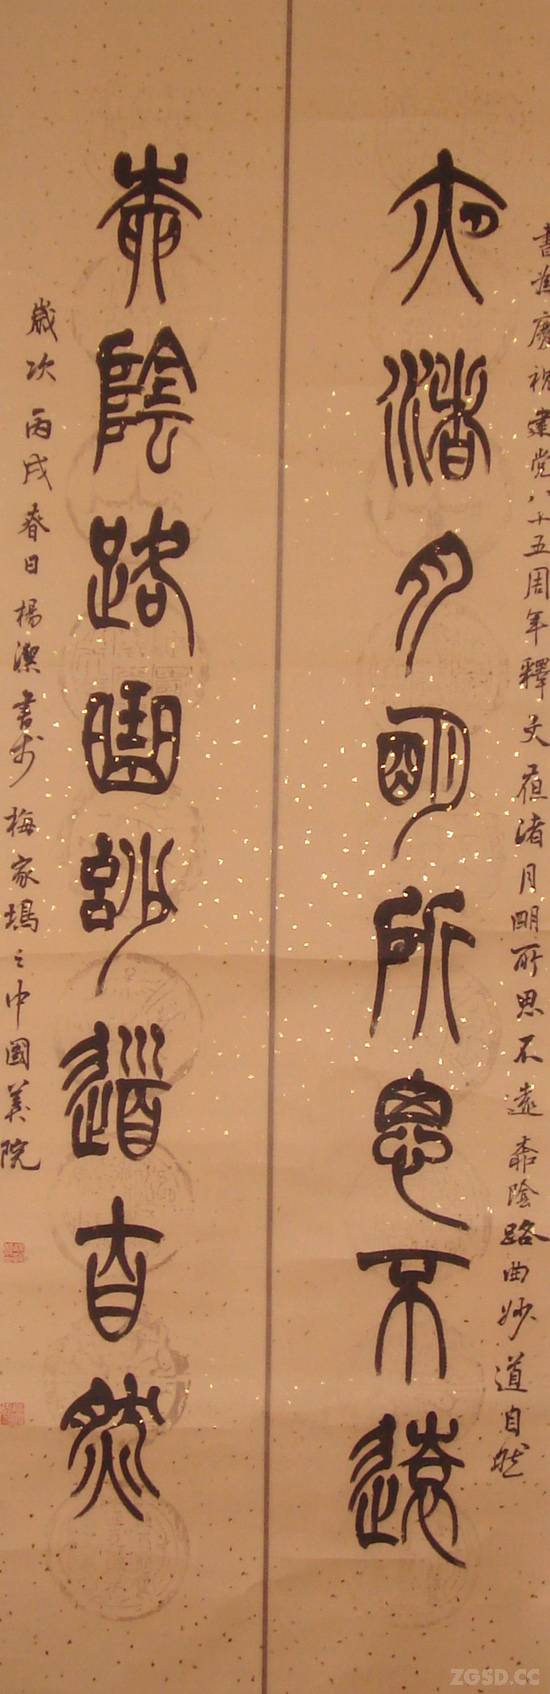 書為慶祝建党八十五周年釋文夜渚月明所思不遠柳陰路曲妙道自然
夜渚月明所思不遠
柳陰路曲妙道自然
歲次丙戌春日楊潔書於梅家塢之中國美院
ZGSD.CC